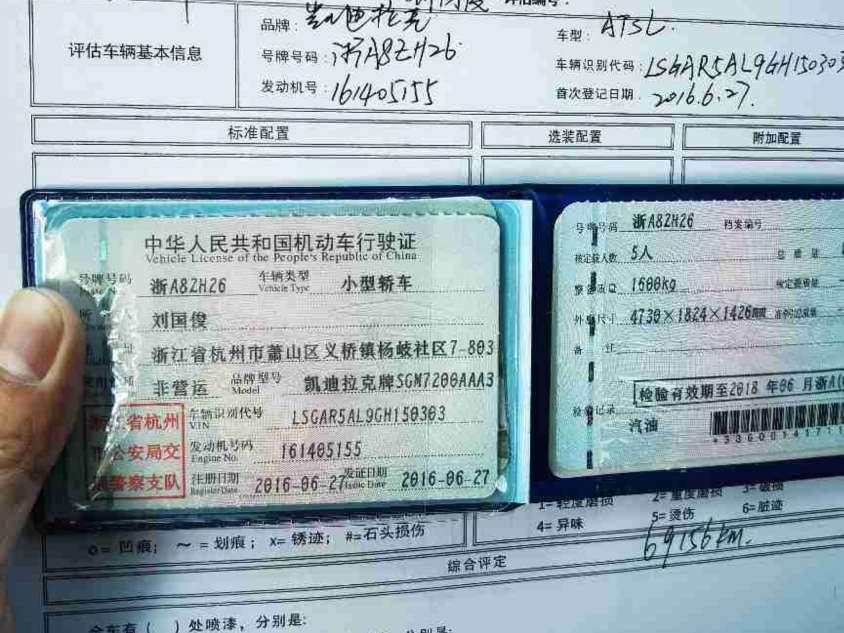 品牌: 凯迪拉克
车型: ATSL
评估车辆基本信息
号牌号码: 浙A8ZH26
车辆识别代码: LSGAR5AL9GH150303
发动机号: 161405155
首次登记日期: 2016.6.27.
标准配置
选装配置
附加配置
中华人民共和国机动车行驶证
Vehicle License of the People's Republic of China
号牌号码 浙A8ZH26 车辆类型 小型轿车
Vehicle Type
刘国俊
浙江省杭州市萧山区义桥镇杨岐社区7-803
非营运 品牌型号 凯迪拉克牌SGM7200AAA3
Model
浙江省杭州
市公安局交
通警察支队
车辆识别代号 LSGAR5AL9GH150303
VIN
发动机号码 161405155
Engine No.
注册日期 2016-06-27 发证日期 2016-06-27
Register Date Issue Date
号牌号码 浙A8ZH26 档案编号
核定载人数 5人 总质量
整备质量 1600kg 核定载质量
外廓尺寸 4730×1824×1426 准牵引总质量
备注
检验有效期至2018年06月浙A
检验记录
汽油
1=轻度磨损 2=重度磨损 3=破损
4=异味 5=烫伤 6=脏迹
o=凹痕; ~=划痕; x=锈迹; #=石头损伤
69156km.
综合评定
全车有( )处喷漆,分别是: